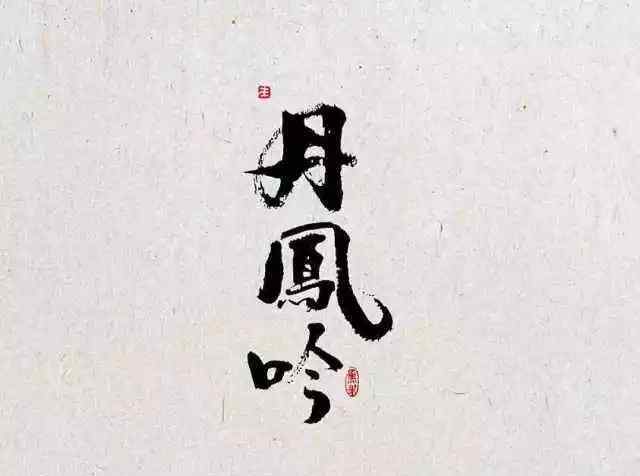 丹鳳吟